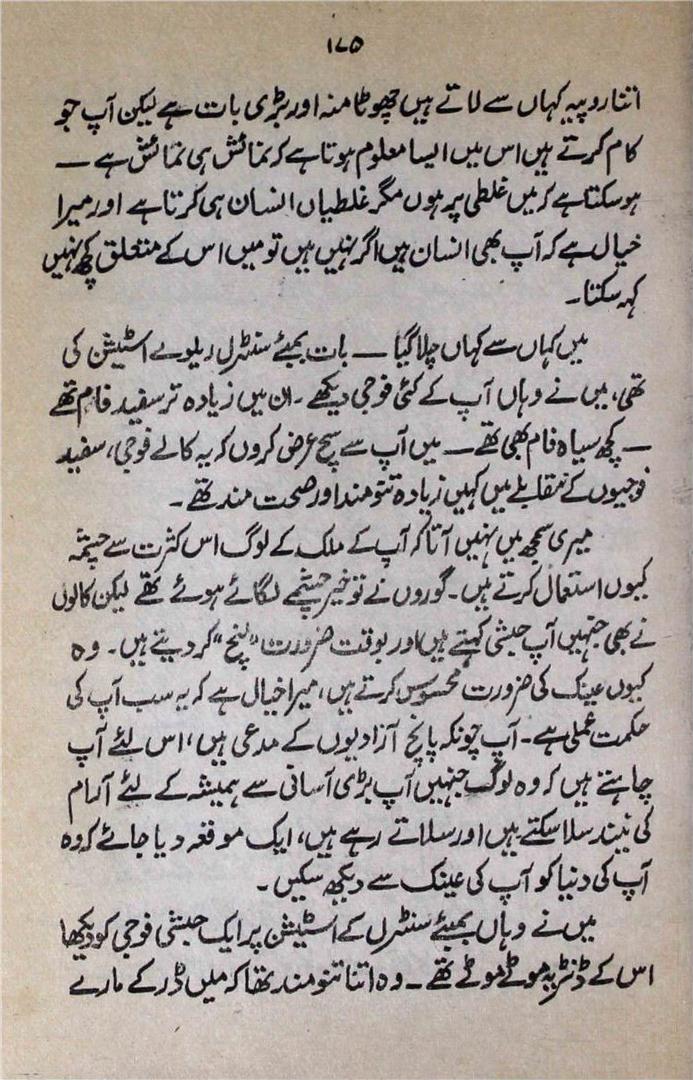 ۱۷۵
اتنا روپیہ کہاں سے لاتے ہیں چھوٹا منہ اور بڑی بات ہے لیکن آپ جو
کام کرتے ہیں اس میں ایسا معلوم ہوتا ہے کہ نمائش ہی نمائش ہے —
ہو سکتا ہے کہ میں غلطی پر ہوں مگر غلطیاں انسان ہی کرتا ہے اور میرا
خیال ہے کہ آپ بھی انسان ہیں اگر نہیں ہیں تو میں اس کے متعلق کچھ نہیں
کہہ سکتا۔
میں کہاں سے کہاں چلا گیا — بات بمبئے سنٹرل ریلوے اسٹیشن کی
تھی، میں نے وہاں آپ کے کئی فوجی دیکھے۔ ان میں زیادہ تر سفید فام تھے
— کچھ سیاہ فام بھی تھے — میں آپ سے سچ عرض کروں کہ یہ کالے فوجی، سفید
فوجیوں کے مقابلے میں کہیں زیادہ تنومند اور صحت مند تھے۔
میری سمجھ میں نہیں آتا کہ آپ کے ملک کے لوگ اس کثرت سے چشمہ
کیوں استعمال کرتے ہیں۔ گوروں نے تو خیر چشمے لگائے ہوئے تھے لیکن کالوں
نے بھی جنہیں آپ حبشی کہتے ہیں اور بوقت ضرورت "لنچ" کر دیتے ہیں۔ وہ
کیوں عینک کی ضرورت محسوس کرتے ہیں، میرا خیال ہے کہ یہ سب آپ کی
حکمت عملی ہے۔ آپ چونکہ پانچ آزادیوں کے مدعی ہیں، اس لئے آپ
چاہتے ہیں کہ وہ لوگ جنہیں آپ بڑی آسانی سے ہمیشہ کے لئے آرام
کی نیند سلا سکتے ہیں اور سلاتے رہے ہیں، ایک موقعہ دیا جائے کہ وہ
آپ کی دنیا کو آپ کی عینک سے دیکھ سکیں۔
میں نے وہاں بمبئے سنٹرل کے اسٹیشن پر ایک حبشی فوجی کو دیکھا
اس کے ڈنٹر یہ موٹے موٹے تھے۔ وہ اتنا تنومند تھا کہ میں ڈر کے مارے